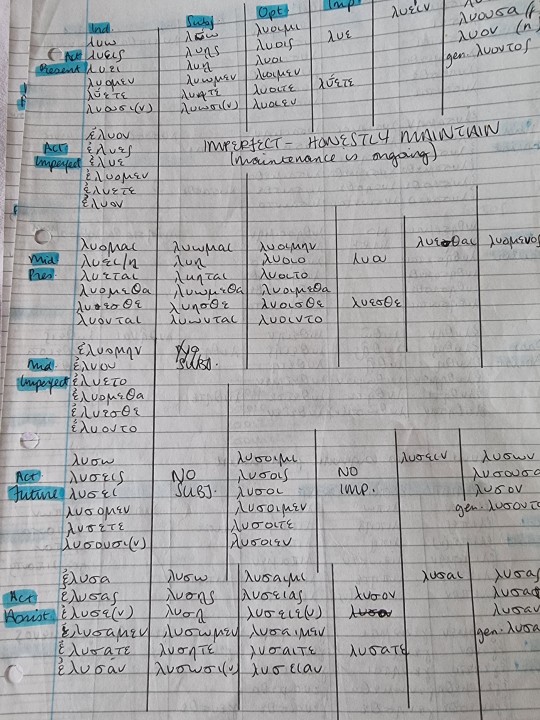 Ind Subj Opt Imp
λυω λυω λυοιμι λυειν
Act λυεις λυῃς λυοις λυε λυουσα (f
Present λυει λυῃ λυοι λυον (n)
λυομεν λυωμεν λυοιμεν gen λυοντος
λυετε λυητε λυοιτε λυετε
λυουσι(ν) λυωσι(ν) λυοιεν
ἐλυον
Act ἐλυες IMPERFECT - HONESTLY MAINTAIN
Imperfect ἐλυε (maintenance is ongoing)
ἐλυομεν
ἐλυετε
ἐλυον
λυομαι λυωμαι λυοιμην λυεσθαι λυομενος
Mid λυει/ῃ λυῃ λυοιο λυου
Pres λυεται λυηται λυοιτο
λυομεθα λυωμεθα λυοιμεθα
λυεσθε λυησθε λυοισθε λυεσθε
λυονται λυωνται λυοιντο
ἐλυομην No
Mid ἐλυου SUBJ.
Imperfect ἐλυετο
ἐλυομεθα
ἐλυεσθε
ἐλυοντο
λυσω λυσοιμι λυσειν λυσων
Act λυσεις NO λυσοις NO λυσουσα
Future λυσει SUBJ. λυσοι IMP. λυσον
λυσομεν λυσοιμεν gen. λυσοντο
λυσετε λυσοιτε
λυσουσι(ν) λυσοιεν
ἐλυσα λυσω λυσαιμι λυσαι λυσας
Act ἐλυσας λυσῃς λυσειας λυσον λυσασ
Aorist ἐλυσε(ν) λυσῃ λυσειε(ν) λυσαν
ἐλυσαμεν λυσωμεν λυσαιμεν gen. λυσα
ἐλυσατε λυσητε λυσαιτε λυσατε
ἐλυσαν λυσωσι(ν) λυσειαν